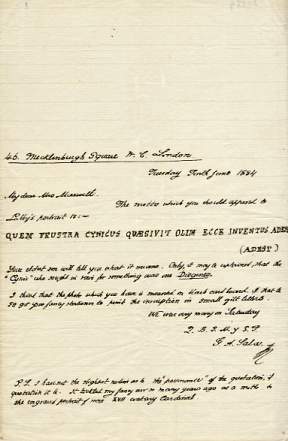 46. Mecklenburgh Square W. C. London
Tuesday Tenth June 1884
My dear Mrs Maxwell
The motto which you should append to
Lilly's portrait is:-
QUEM FRUSTRA CYNICUS QUÆSIVIT OLIM ECCE INVENTUS ADEST
(ADEST)
Your student son will tell you what it means. Only, it may be explained, that the
"Cynic" who sought in vain for something was one Diogenes.
I think that the photo which you have is mounted on black card board. If that is
so get your fancy stationer to print the inscription in small gilt letters.
We were very many on Saturday
G. A. Sala
P.S. I have not the slightest notion as to the "provenance" of the quotation, if
quotation it is. It tickled my fancy ever so many years ago as a motto to
the engraved portrait of some XVII century Cardinal.